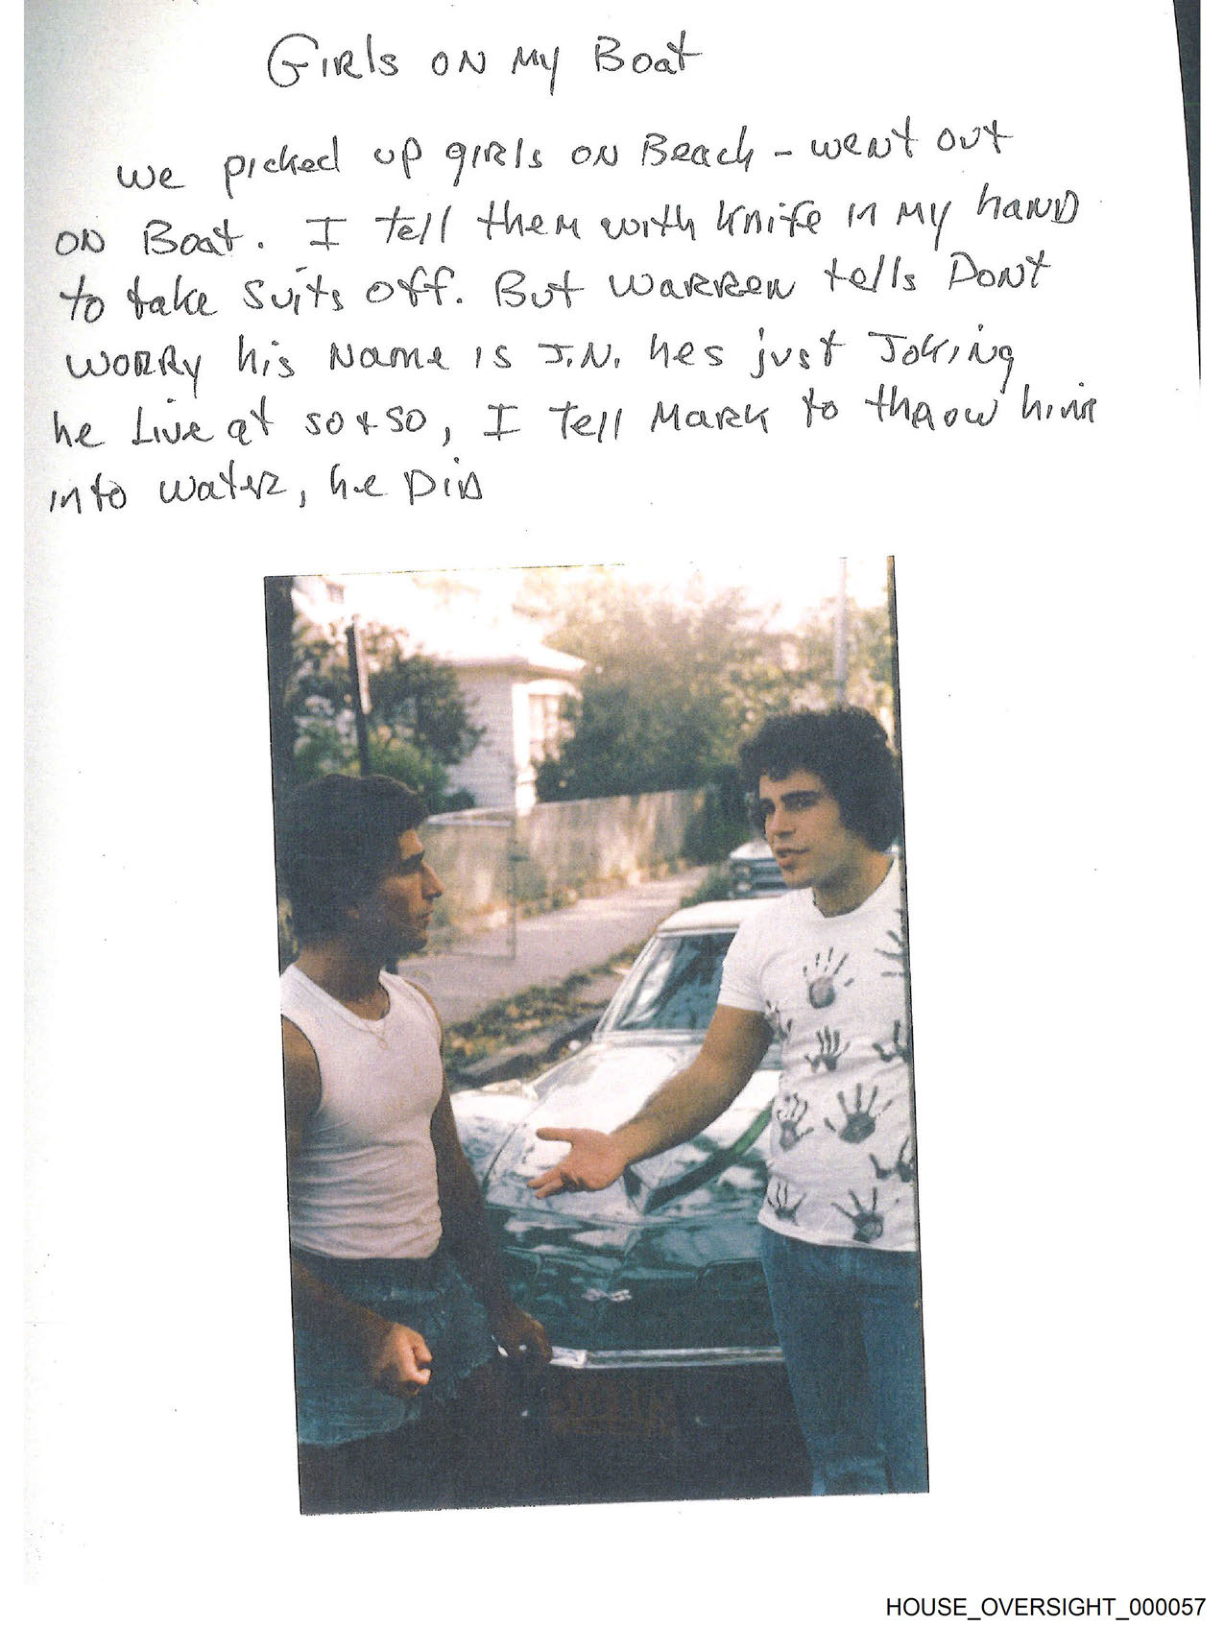 GIRls ON My Boat
we picked up giRls ON Beach - went out
ON Boat. I tell them with knife in My hAND
to take Suits off. But WaRRen tells DoNt
WORRy his Name is J.N. hes just JoKing
he Live at so + so, I Tell MaRk to thRow him
into wateR, he DiD
HOUSE_OVERSIGHT_000057